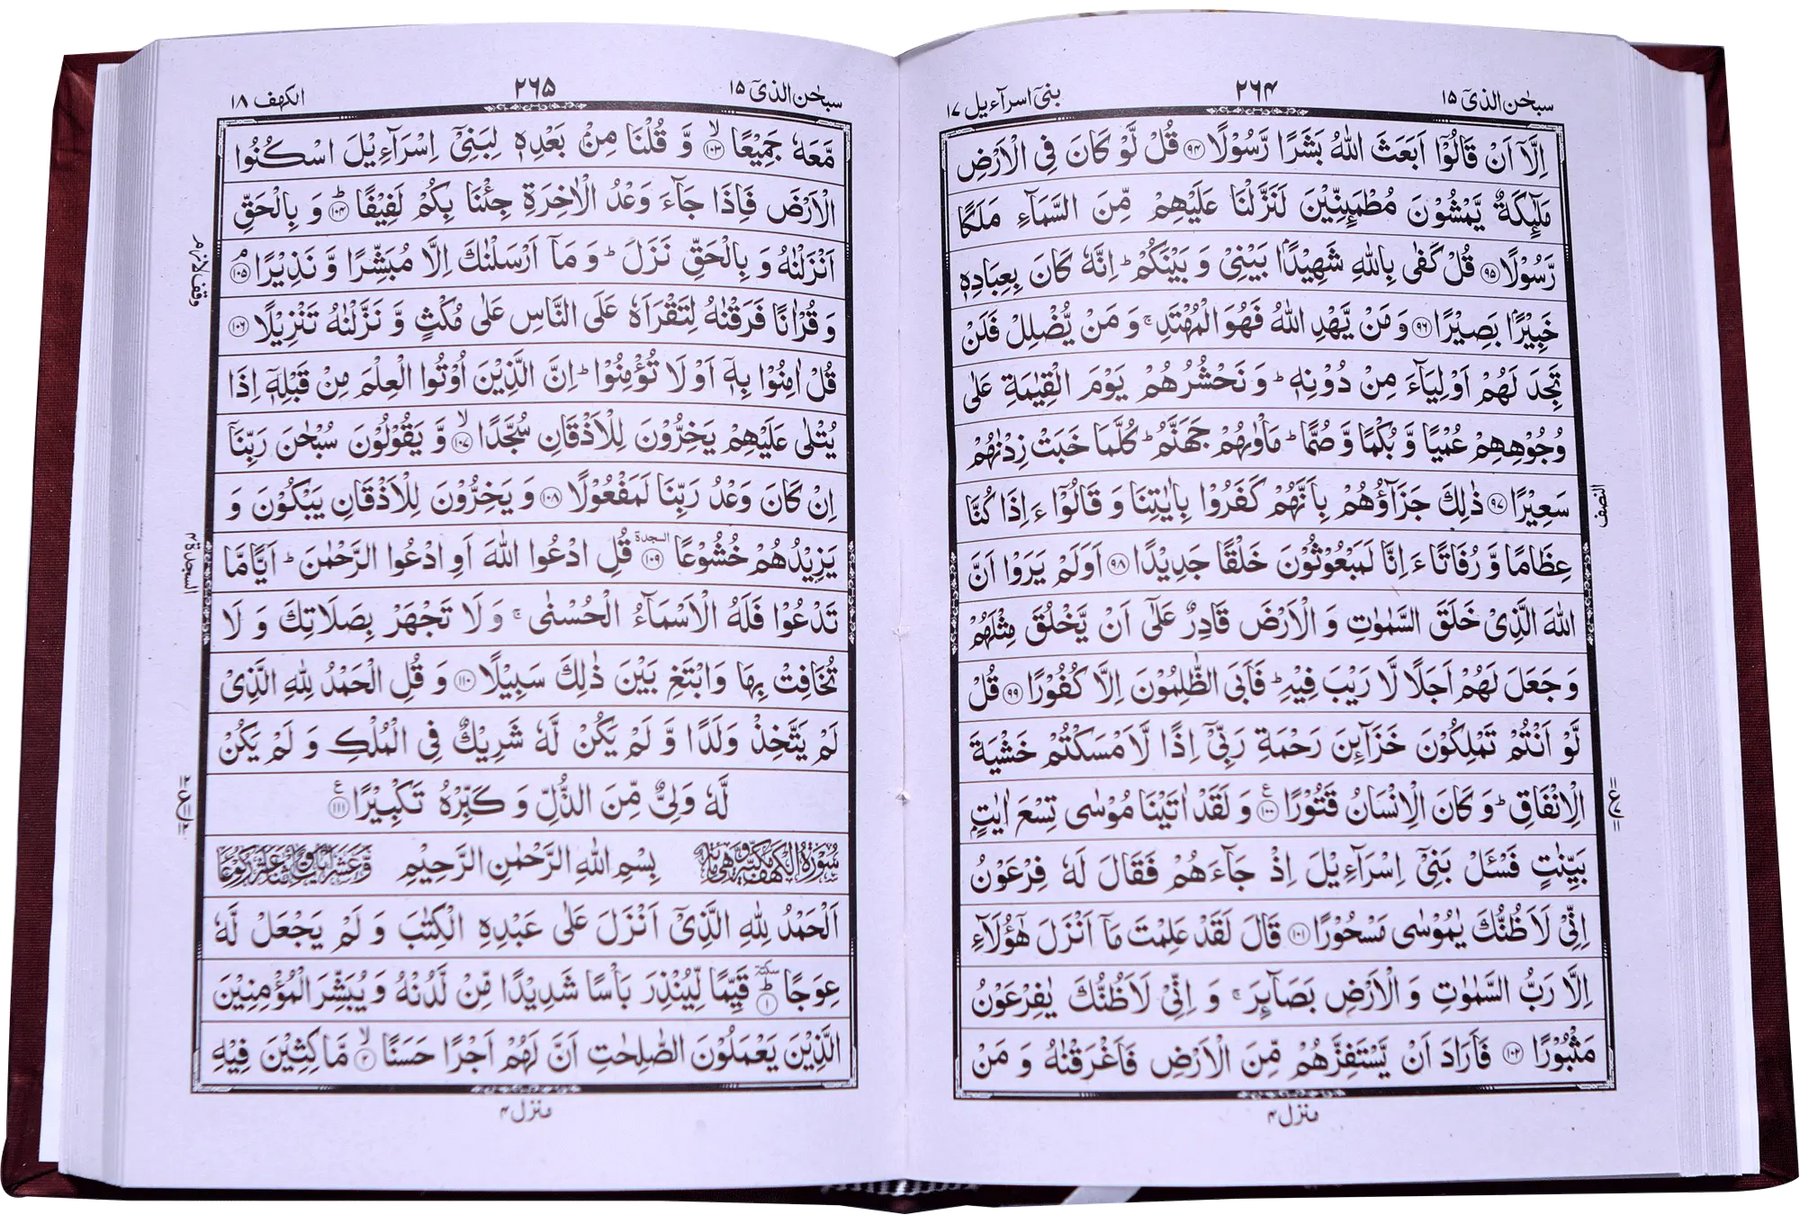 سبحٰن الذیٓ ۱۵
۲۶۴
بنیٓ اسرآءیل ۱۷
اِلَّاۤ اَنْ قَالُوْۤا اَبَعَثَ اللّٰهُ بَشَرًا رَّسُوْلًا ۹۴ قُلْ لَّوْ كَانَ فِی الْاَرْضِ
مَلٰٓىِٕكَةٌ یَّمْشُوْنَ مُطْمَىِٕنِّیْنَ لَنَزَّلْنَا عَلَیْهِمْ مِّنَ السَّمَآءِ مَلَكًا
رَّسُوْلًا ۹۵ قُلْ كَفٰی بِاللّٰهِ شَهِیْدًۢا بَیْنِیْ وَ بَیْنَكُمْ ؕ اِنَّهٗ كَانَ بِعِبَادِهٖ
خَبِیْرًۢا بَصِیْرًا ۹۶ وَ مَنْ یَّهْدِ اللّٰهُ فَهُوَ الْمُهْتَدِ ۚ وَ مَنْ یُّضْلِلْ فَلَنْ
تَجِدَ لَهُمْ اَوْلِیَآءَ مِنْ دُوْنِهٖ ؕ وَ نَحْشُرُهُمْ یَوْمَ الْقِیٰمَةِ عَلٰی
وُجُوْهِهِمْ عُمْیًا وَّ بُكْمًا وَّ صُمًّا ؕ مَاْوٰىهُمْ جَهَنَّمُ ؕ كُلَّمَا خَبَتْ زِدْنٰهُمْ
سَعِیْرًا ۹۷ ذٰلِكَ جَزَآؤُهُمْ بِاَنَّهُمْ كَفَرُوْا بِاٰیٰتِنَا وَ قَالُوْۤا ءَاِذَا كُنَّا
عِظَامًا وَّ رُفَاتًا ءَاِنَّا لَمَبْعُوْثُوْنَ خَلْقًا جَدِیْدًا ۹۸ اَوَلَمْ یَرَوْا اَنَّ
اللّٰهَ الَّذِیْ خَلَقَ السَّمٰوٰتِ وَ الْاَرْضَ قَادِرٌ عَلٰۤی اَنْ یَّخْلُقَ مِثْلَهُمْ
وَ جَعَلَ لَهُمْ اَجَلًا لَّا رَیْبَ فِیْهِ ؕ فَاَبَی الظّٰلِمُوْنَ اِلَّا كُفُوْرًا ۹۹ قُلْ
لَّوْ اَنْتُمْ تَمْلِكُوْنَ خَزَآىِٕنَ رَحْمَةِ رَبِّیْۤ اِذًا لَّاَمْسَكْتُمْ خَشْیَةَ
الْاِنْفَاقِ ؕ وَ كَانَ الْاِنْسَانُ قَتُوْرًا ۱۰۰ وَ لَقَدْ اٰتَیْنَا مُوْسٰی تِسْعَ اٰیٰتٍۭ
بَیِّنٰتٍ فَسْـَٔلْ بَنِیْۤ اِسْرَآءِیْلَ اِذْ جَآءَهُمْ فَقَالَ لَهٗ فِرْعَوْنُ
اِنِّیْ لَاَظُنُّكَ یٰمُوْسٰی مَسْحُوْرًا ۱۰۱ قَالَ لَقَدْ عَلِمْتَ مَاۤ اَنْزَلَ هٰۤؤُلَآءِ
اِلَّا رَبُّ السَّمٰوٰتِ وَ الْاَرْضِ بَصَآىِٕرَ ۚ وَ اِنِّیْ لَاَظُنُّكَ یٰفِرْعَوْنُ
مَثْبُوْرًا ۱۰۲ فَاَرَادَ اَنْ یَّسْتَفِزَّهُمْ مِّنَ الْاَرْضِ فَاَغْرَقْنٰهُ وَ مَنْ
النصف
منزل ۴
سبحٰن الذیٓ ۱۵
۲۶۵
الکهف ۱۸
مَّعَهٗ جَمِیْعًا ۱۰۳ۙ وَّ قُلْنَا مِنْۢ بَعْدِهٖ لِبَنِیْۤ اِسْرَآءِیْلَ اسْكُنُوا
الْاَرْضَ فَاِذَا جَآءَ وَعْدُ الْاٰخِرَةِ جِئْنَا بِكُمْ لَفِیْفًا ۱۰۴ؕ وَ بِالْحَقِّ
اَنْزَلْنٰهُ وَ بِالْحَقِّ نَزَلَ ؕ وَ مَاۤ اَرْسَلْنٰكَ اِلَّا مُبَشِّرًا وَّ نَذِیْرًا ۱۰۵ۘ
وَ قُرْاٰنًا فَرَقْنٰهُ لِتَقْرَاَهٗ عَلَی النَّاسِ عَلٰی مُكْثٍ وَّ نَزَّلْنٰهُ تَنْزِیْلًا ۱۰۶
قُلْ اٰمِنُوْا بِهٖۤ اَوْ لَا تُؤْمِنُوْا ؕ اِنَّ الَّذِیْنَ اُوْتُوا الْعِلْمَ مِنْ قَبْلِهٖۤ اِذَا
یُتْلٰی عَلَیْهِمْ یَخِرُّوْنَ لِلْاَذْقَانِ سُجَّدًا ۱۰۷ۙ وَّ یَقُوْلُوْنَ سُبْحٰنَ رَبِّنَاۤ
اِنْ كَانَ وَعْدُ رَبِّنَا لَمَفْعُوْلًا ۱۰۸ وَ یَخِرُّوْنَ لِلْاَذْقَانِ یَبْكُوْنَ وَ
یَزِیْدُهُمْ خُشُوْعًا ۱۰۹ السجدة قُلِ ادْعُوا اللّٰهَ اَوِ ادْعُوا الرَّحْمٰنَ ؕ اَیًّا مَّا
تَدْعُوْا فَلَهُ الْاَسْمَآءُ الْحُسْنٰی ۚ وَ لَا تَجْهَرْ بِصَلَاتِكَ وَ لَا
تُخَافِتْ بِهَا وَ ابْتَغِ بَیْنَ ذٰلِكَ سَبِیْلًا ۱۱۰ وَ قُلِ الْحَمْدُ لِلّٰهِ الَّذِیْ
لَمْ یَتَّخِذْ وَلَدًا وَّ لَمْ یَكُنْ لَّهٗ شَرِیْكٌ فِی الْمُلْكِ وَ لَمْ یَكُنْ
لَّهٗ وَلِیٌّ مِّنَ الذُّلِّ وَ كَبِّرْهُ تَكْبِیْرًا ۱۱۱
بِسْمِ اللّٰهِ الرَّحْمٰنِ الرَّحِیْمِ
اَلْحَمْدُ لِلّٰهِ الَّذِیْۤ اَنْزَلَ عَلٰی عَبْدِهِ الْكِتٰبَ وَ لَمْ یَجْعَلْ لَّهٗ
عِوَجًا ۱ؕ سكتة قَیِّمًا لِّیُنْذِرَ بَاْسًا شَدِیْدًا مِّنْ لَّدُنْهُ وَ یُبَشِّرَ الْمُؤْمِنِیْنَ
الَّذِیْنَ یَعْمَلُوْنَ الصّٰلِحٰتِ اَنَّ لَهُمْ اَجْرًا حَسَنًا ۲ۙ مَّاكِثِیْنَ فِیْهِ
وقف لازم
السجدة ۴
منزل ۴